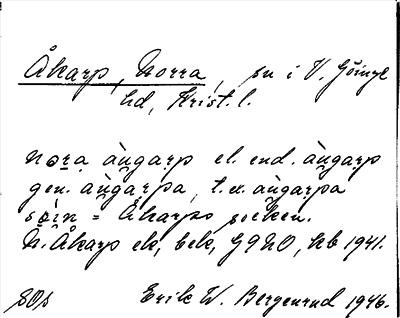 Åkarp, Norra, sn i V. Göinge
hd, Krist. l.
nọra àŋgarp el. end. àŋgarp
gen. àŋgarpa, t.ex. àŋgarpa
= Åkarps socken.
N. Åkarp ek, bek, G9NO, hb 1941.
Erik W. Bergenrud 1946.